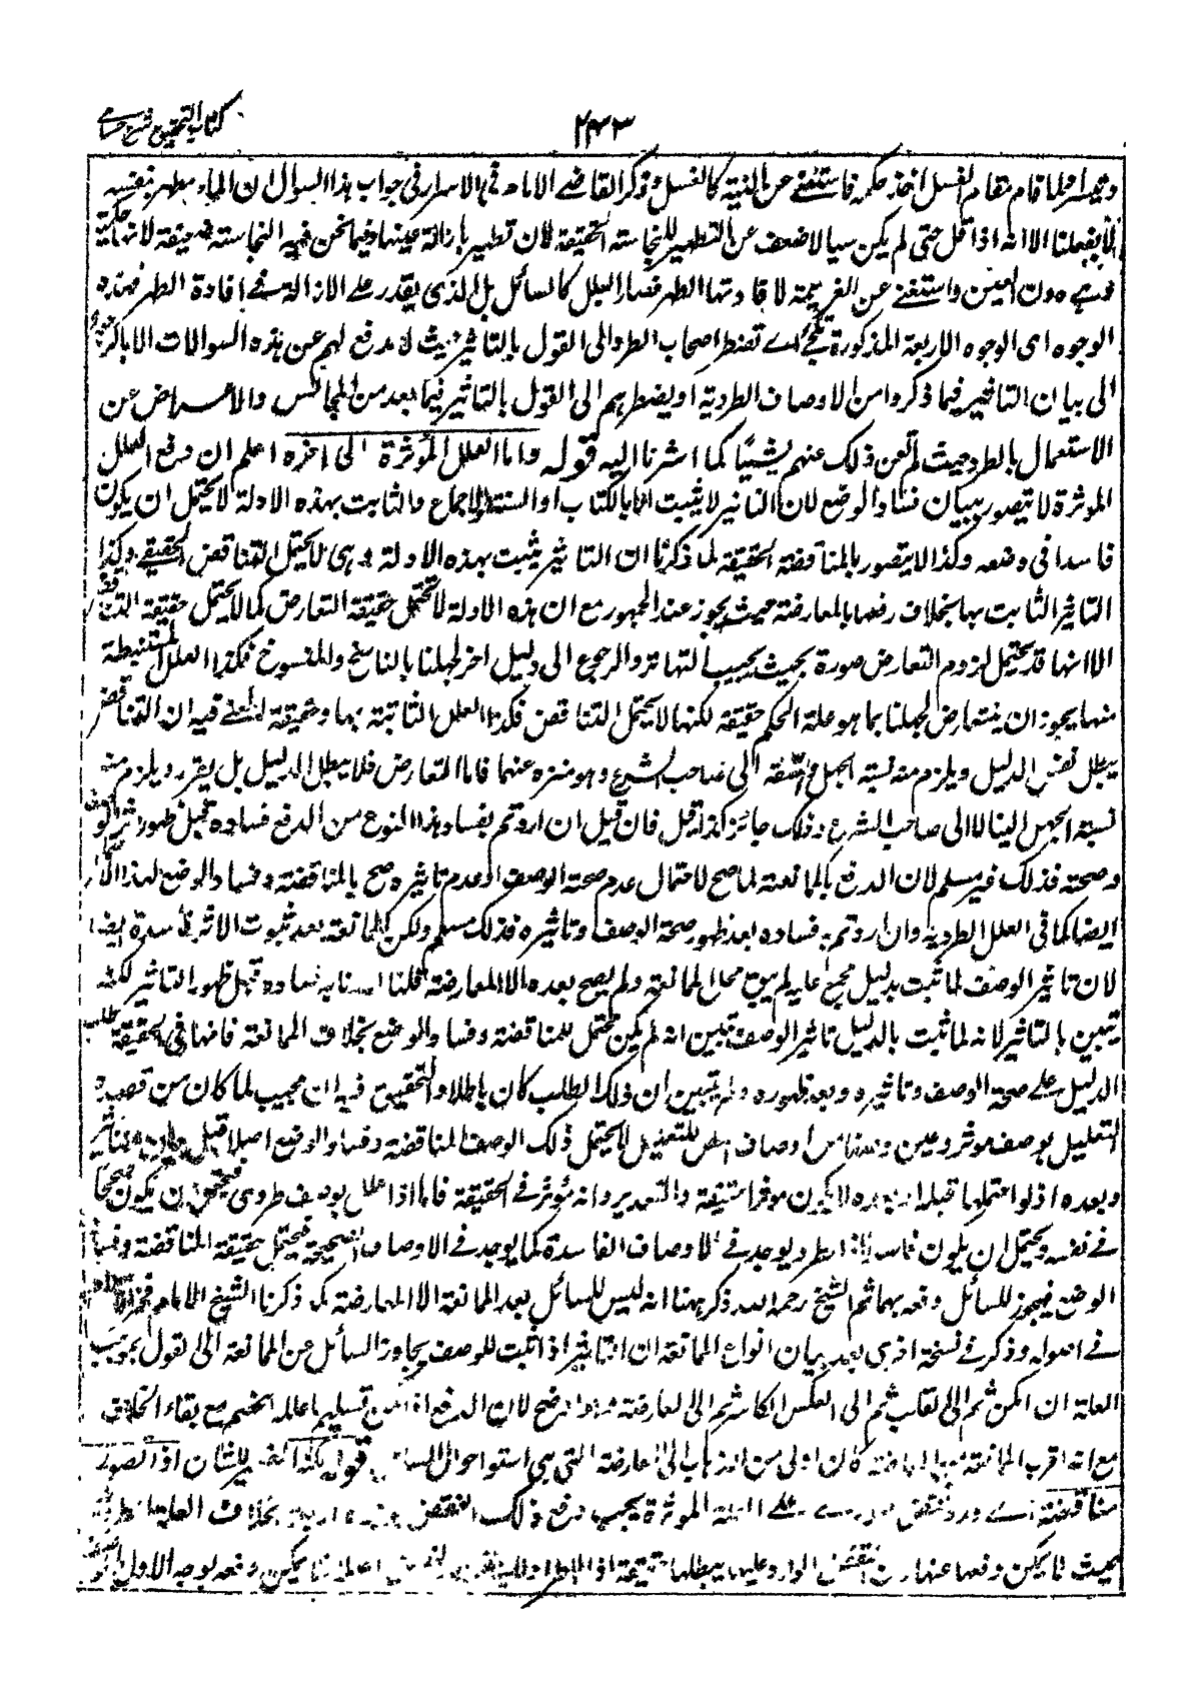 ٢٤٣
كتاب التحقيق شرح حسامي
وتيسرا فلما قام مقام الغسل اخذ حكمه فاستغنى عن النية كالغسل وذكر القاضي الامام في الاسرار في جواب هذا السوال ان الماء مطهر بنفسه
الا انه اذا قل حتى لم يكن سيالا ضعف عن التطهير للنجاسة الحقيقة لان تطهير بازالة عينها وفيما نحن فيه النجاسة ضعيفة لانها حكمية
وهي دون العين واستغنى عن العزيمة لافادتها الطهر فصار البلل كالسائل بل الذي يقدر على الازالة في افادة الطهر فهذه
الوجوه اى الوجوه الاربعة المذكورة تلجئ اي تضطر اصحاب الطرد الى القول بالتاثير حيث لا مدفع لهم عن هذه السوالات الا بالرجوع
الى بيان التاثير فيما ذكروا من الاوصاف الطردية او يضطرهم الى القول بالتاثير فيما بعد من المجالس والاعراض عن
الاستعمال بالطرد حيث لم يغن ذلك عنهم شيئا كما اشرنا اليه قوله واما العلل المؤثرة الى اخره اعلم ان دفع العلل
المؤثرة لا يتصور ببيان فساد الوضع لان التاثير لا يثبت الا بالكتاب او السنة او الاجماع والثابت بهذه الادلة لا يحتمل ان يكون
فاسدا في وضعه وكذا لا يتصور بالمناقضة الحقيقة لما ذكرنا ان التاثير يثبت بهذه الادلة وهي لا تحتمل التناقض الحقيقي وكذا
التاثير الثابت بها بخلاف دفعها بالمعارضة حيث يجوز عند الجمهور مع ان هذه الادلة لا تحتمل حقيقة التعارض كما لا يحتمل حقيقة التناقض
الا انها قد يحتمل لزوم التعارض صورة بحيث يجب التهاتر والرجوع الى دليل اخر لجهلنا بالناسخ والمنسوخ فكذا العلل المستنبطة
منها يجوز ان يتعارض لجهلنا بما هو علة الحكم حقيقة لكنها لا يحتمل التناقض فكذا العلل الثابتة بها وحقيقة المعنى فيه ان التناقض
يبطل نفس الدليل ويلزم منه نسبة الجهل والسفه الى صاحب الشرع وهو منزه عنهما فاما التعارض فلا يبطل الدليل بل يقرره ويلزم منه
نسبة الجهل الينا لا الى صاحب الشرع وذلك جائز كذا قيل فان قيل ان اردتم بفساد هذا النوع من الدفع فساده قبل ظهور اثر الوصف
وصحته فذلك غير مسلم لان الدفع بالممانعة لما صح لاحتمال عدم صحة الوصف او عدم تاثيره صح بالمناقضة وفساد الوضع لهذا الاحتمال
ايضا كما في العلل الطردية وان اردتم به فساده بعد ظهور صحة الوصف وتاثيره فذلك مسلم ولكن الممانعة بعد ثبوت الاثر فاسدة ايضا
لان تاثير الوصف لما ثبت بدليل مجمع عليه لم يبق محل الممانعة ولم يصح بعده الا المعارضة قلنا فساده قبل ظهور التاثير لكنه
تبين بالتاثير لانه لما ثبت بالدليل تاثير الوصف تبين انه لم يكن محتمل للمناقضة وفساد الوضع بخلاف الممانعة فانها في الحقيقة طلب
الدليل على صحة الوصف وتاثيره وبعد ظهوره ولم يتبين ان ذلك الطلب كان باطلا والتحقيق فيه ان مجيب لما كان من قصده
التعليل بوصف مؤثر وعين وصفا من اوصاف الاصل للتعليل لا يحتمل ذلك الوصف المناقضة وفساد الوضع اصلا قبل بيان تاثيره
وبعده اذ لو احتملها قبله او بعده لا يكون مؤثرا حقيقة والتقدير وانه مؤثر في الحقيقة فاما اذا علل بوصف طردي فيحتمل ان يكون صحيحا
في نفسه ويحتمل ان يكون فاسدا اذ الطرد يوجد في الاوصاف الفاسدة كما يوجد في الاوصاف الصحيحة فيحتمل حقيقة المناقضة وفساد
الوضع فيجوز للسائل دفعه بهما ثم الشيخ رحمه الله ذكر ههنا انه ليس للسائل بعد الممانعة الا المعارضة كما ذكرنا الشيخ الامام فخر الاسلام
في اصوله وذكر في نسخة اخرى بعد بيان انواع الممانعة ان التاثير اذا ثبت للوصف يجاوز السائل عن الممانعة الى القول بموجب
العلة ان امكن ثم الى القلب ثم الى العكس الكاسر ثم الى المعارضة لان الدفع تسليم ما علله الخصم مع بقاء الخلاف
مع انه اقرب الممانعة كان اولى من الذهاب الى المعارضة التي هي استوا حوال السائل قوله لكنه اذا تصور
مناقضة اي ورد نقض على العلة المؤثرة يجب دفع ذلك النقض بوجوه اربعة بخلاف العلة الطردية
بحيث لا يمكن دفعها عنها لان النقض الوارد عليها يبطلها حقيقة اذ الاطراد يمكن دفعه بوجه الاول